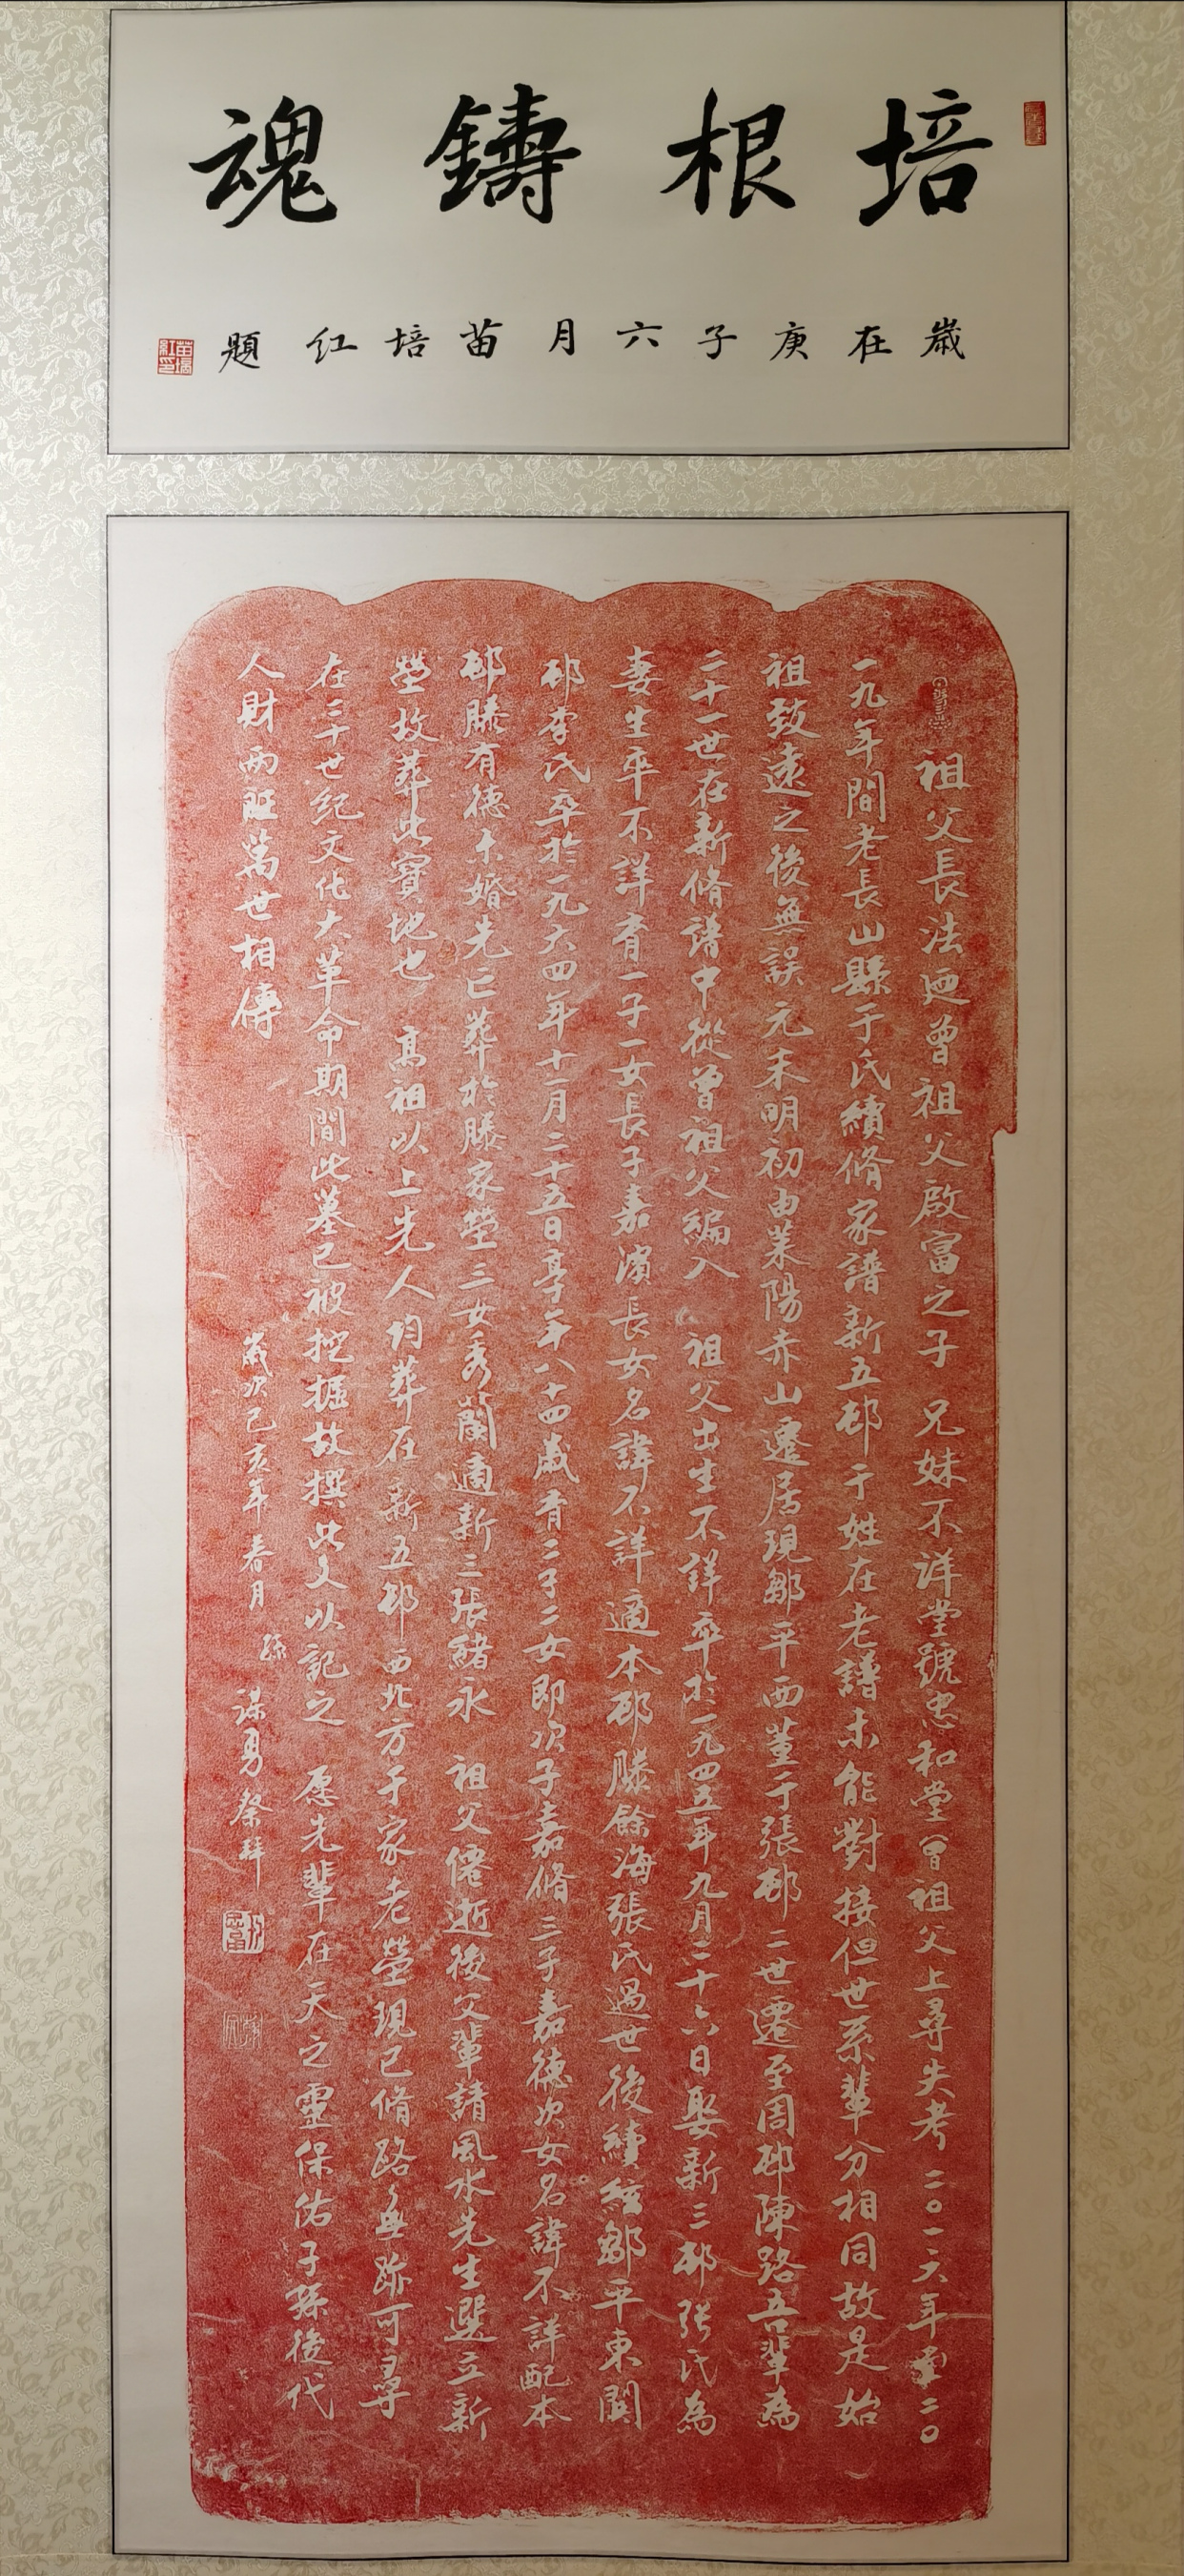 培根鑄魂
歲在庚子六月苗培红題
苗培紅印
祖父長法迺曾祖父啟富之子 兄妹不详堂號忠和堂曾祖父上尋失考 二〇一六年至二〇
一九年間老長山縣于氏續脩家譜新五邨于姓在老譜未能對接但世系輩分相同故是始
祖致遠之後無誤元末明初由萊陽赤山遷居現鄒平西董于張邨二世遷至周邨陳路吾輩為
二十一世在新脩譜中從曾祖父編入 祖父出生不詳卒於一九四五年九月二十六日娶新三邨張氏為
妻生卒不詳育一子一女長子嘉濱長女名諱不詳適本邨滕餘海張氏過世後續絃鄒平東關
邨李氏卒於一九六四年十一月二十五日享年八十四歲育二子二女即次子嘉脩三子嘉德次女名諱不詳配本
邨滕有德未婚先亡葬於滕家塋三女秀蘭適新三張緒永 祖父僊逝後父輩請風水先生選立新
塋故葬此寶地也 高祖以上先人均葬在新五邨西北方于家老塋現已脩路無跡可尋
在二十世纪文化大革命期間此墓已被挖掘故撰此文以記之 愿先輩在天之靈保佑子孫後代
人財两旺萬世相傳
歲次己亥年春月 孫 謀勇祭拜